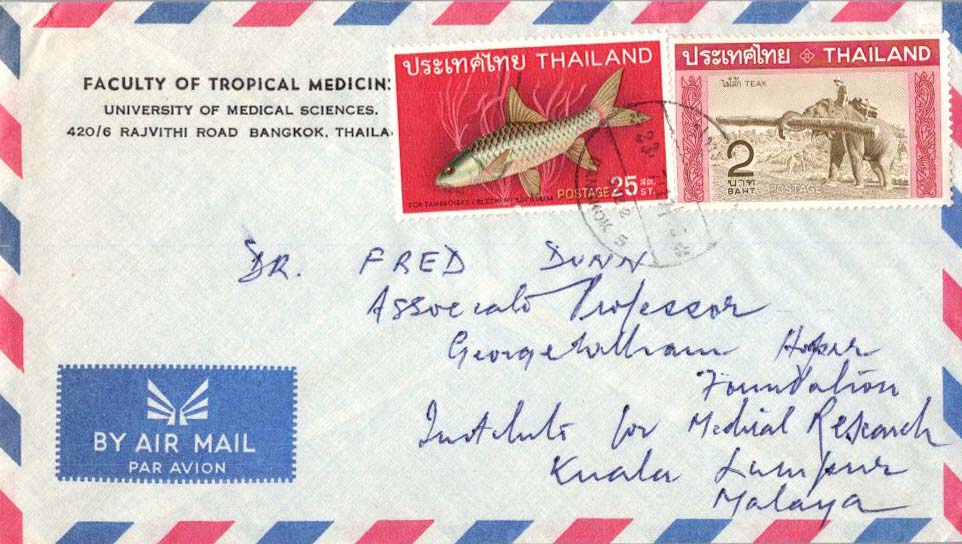 FACULTY OF TROPICAL MEDICIN
UNIVERSITY OF MEDICAL SCIENCES.
420/6 RAJVITHI ROAD BANGKOK, THAILA
ประเทศไทย THAILAND
POSTAGE 25 สต. ST.
ประเทศไทย THAILAND
ไม้สัก TEAK
2
บาท
BAHT. POSTAGE
DR. FRED DUNN
Associate Professor
George Hooper
Foundation
Institute for Medical Research
Kuala Lumpur
Malaya
BY AIR MAIL
PAR AVION